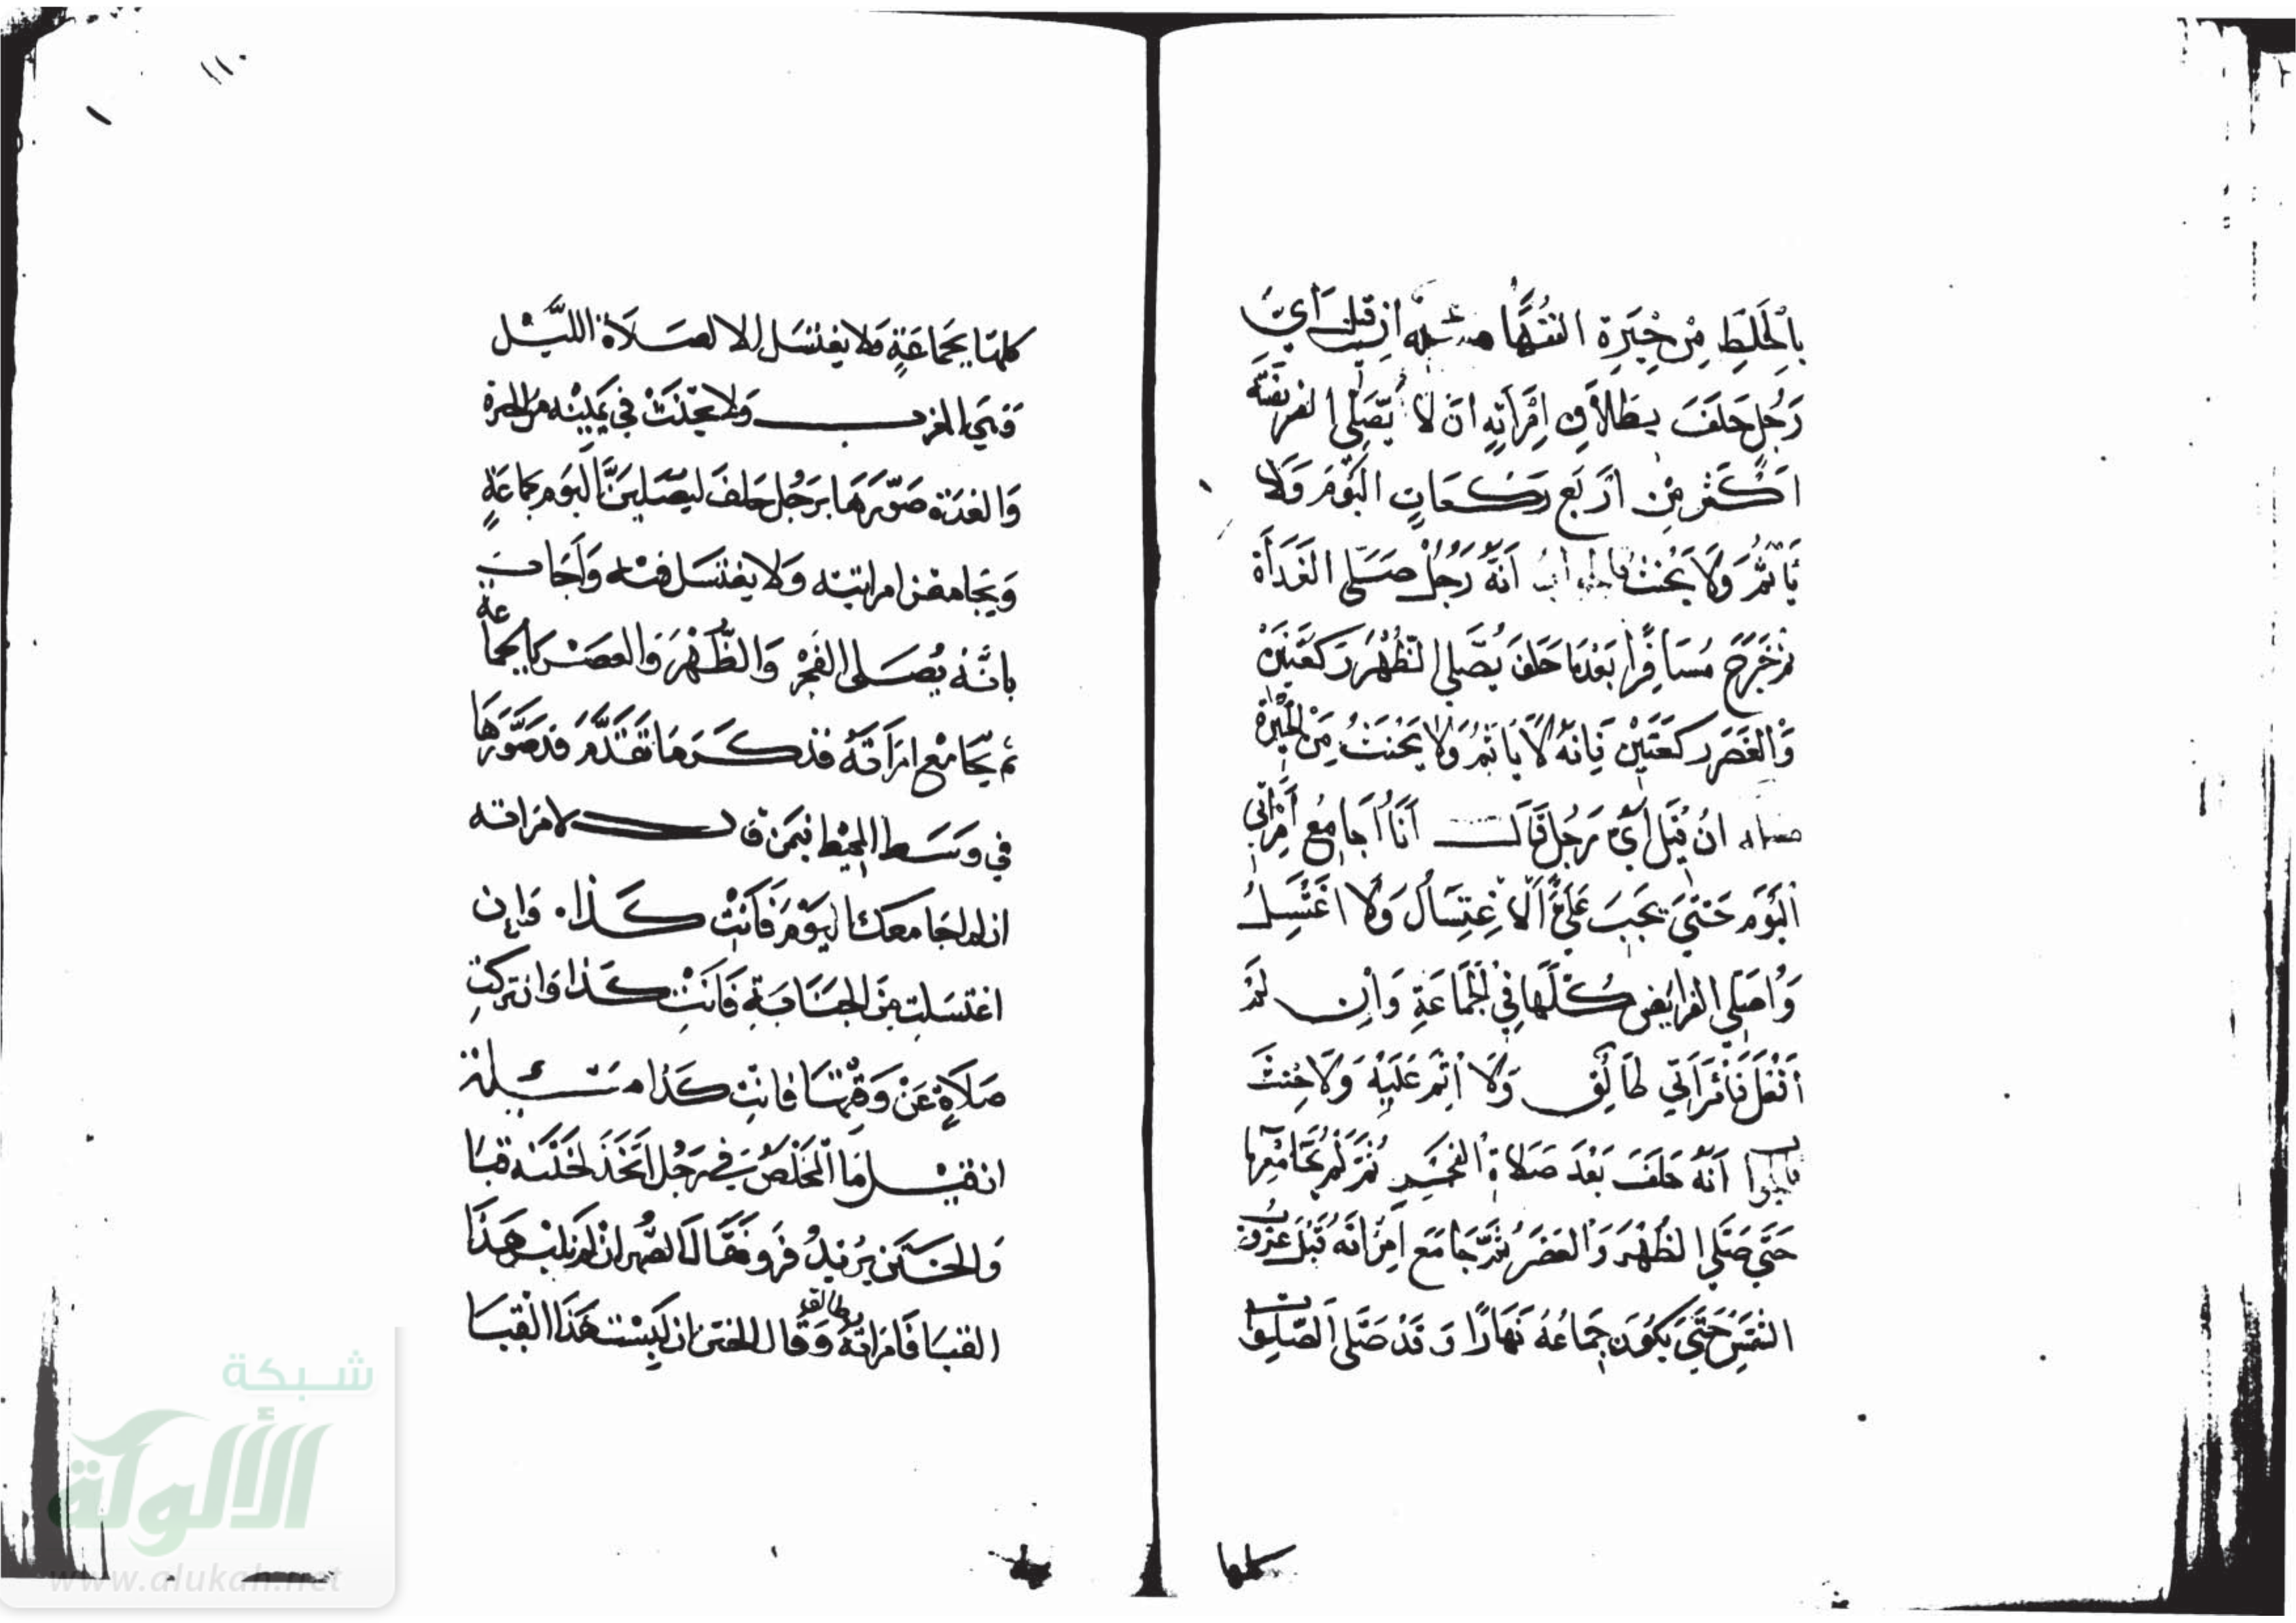 بِالْخَلَطِ مِنْ حِيَرِة الفُقَهَا مسئلة ان قيل اَيُّ
رَجُلٍ حَلَفَ بِطَلاَقِ اِمْرَأتِهِ ان لاَ يُصَلِّى الفريضَة
اكْثر مِن اَرْبَع ركعَاتٍ اليَوْمَ وَلَا
يَأثَمُ وَلَا يَحْنثُ فالجواب اَنَّهُ رَجُلٌ صَلَّى الغَدَاةَ
ثم خَرَجَ مُسَافِرًا بَعْدَمَا حَلَفَ يُصَلّي الظُهْرَ رَكعَتَيْن
وَالْعَصَر ركعَتَيْن فَانهُ لَا يَاثمُ وَلَا يَحْنَثُ مِنَ الحِيْرَة
مسئلة انْ قِيْلَ اَيُّ رَجُل قَالَ اَنَا اُجَامِعُ اِمْرَاتي
اليَوْمَ حَتى يَجبَ عَلَيَّ الاغِتِسَالُ وَلَا اغْتَسِلُ
وَاُصَلّي الفرايَض كُلّهَا فِي الجَمَاعَةِ وَاِن لَمْ
اَفْعَل فَامْرَاَتِي طَالِق وَلَا اِثْم عَلَيْهِ وَلَا حِنْثَ
فالجواب اَنّهُ حَلَفَ بَعْدَ صَلاةِ الفَجْرِ ثمَّ لَمْ يُجَامِعْهَا
حَتّي صَلّي الظُهْرَ وَالعَصْرَ ثُمَّ جَامَعَ اِمْرَاتَهُ قَبْلَ غرُوب
الشمْسِ حَتَّي يَكُونَ جِمَاعُهُ نَهَارًا وَقَدْ صَلَّى الصّلوات
كلها
كلهَا بجَمَاعَةٍ وَلَا يغتسَل الا لصَلَاة اللَّيْل
وَهي المغرب وَلا يَحْنَث في يَمِيْنه من الحيرة
وَالعُدَة صَوّرَهَا برَجُل حلفَ ليُصَلينَّ اليَوم بجَمَاعَةٍ
وَيجَامعْن امراته وَلَا يغتسَل فيه وَاَجَاب
بانَّهُ يُصَلى الفَجْر وَالظُّهْرَ وَالعصْر بالجماعة
ثم يُجَامع امرَاَتَهُ فذكَر مَا تَقَدَّم قد صَوَّرَهَا
في وَسَط المحِيْط فيمن قال لامراته
ان لم اجَامعك اليَوْم فَانتْ كَذا وَان
اغتسَلت مِنَ الجَنَابَةِ فَانتِ كَذا وَان تركت
صَلَاةٍ عَنْ وَقْتِهَا فَانتِ كَذا مسئلة
ان قيْل مَا المَخْلَصُ في رَجُل اتّخَذَ لخَتَنه قبَا
وَالخَتَن يُريْدُ فَرو فَقَالَ الصّهر ان لم يَلبِس هَذَا
القبَا فَامْرَاته طالق وَقَال الختن ان لَبِسْت هَذَا القبَا
شبكة
الألوكة
www.alukah.net